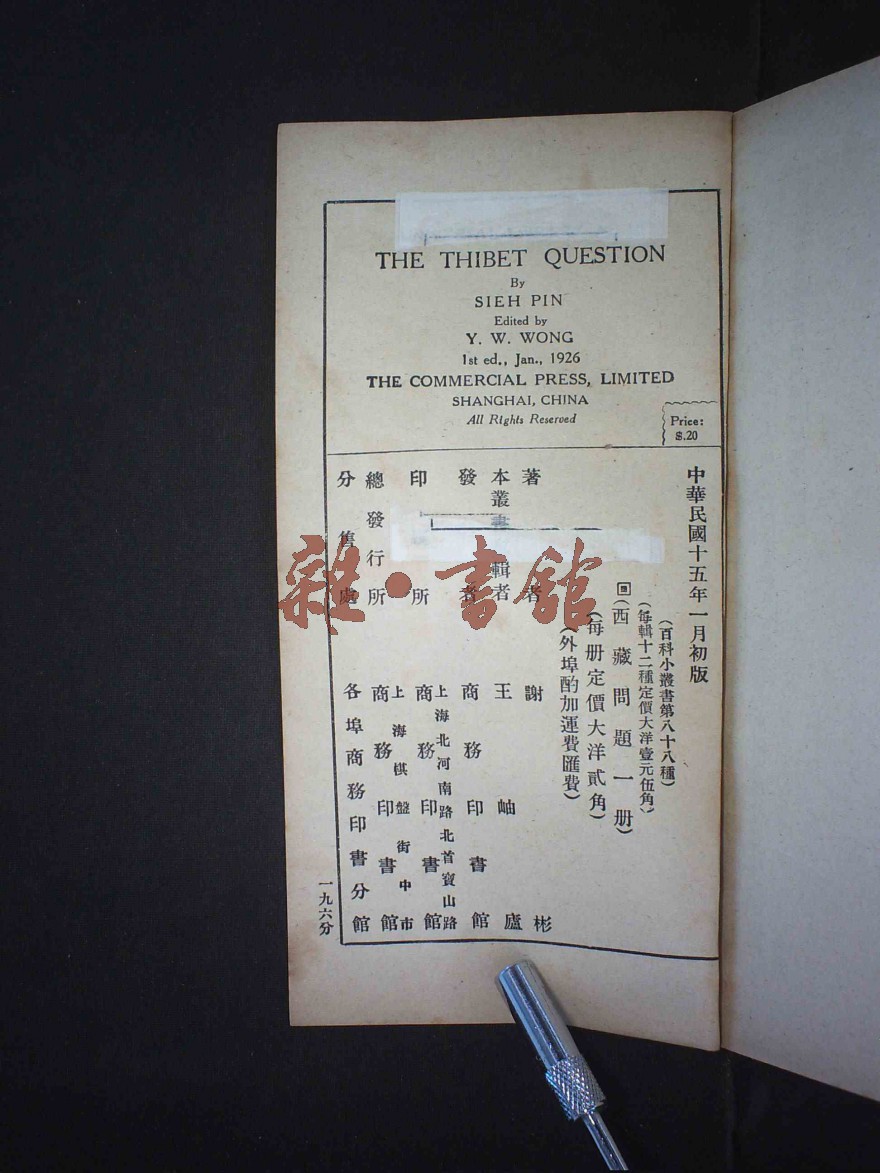 THE THIBET QUESTION
By
SIEH PIN
Edited by
Y. W. WONG
1st ed., Jan., 1926
THE COMMERCIAL PRESS, LIMITED
SHANGHAI, CHINA
All Rights Reserved
Price:
$.20
中華民國十五年一月初版
(百科小叢書第八十八種)
(每輯十二種定價大洋壹元伍角)
西藏問題一册)
(每册定價大洋貳角)
(外埠酌加運費匯費)
著者 謝彬
本叢書輯者 王岫廬
發者 商務印書館
印所 上海北河南路北首寶山路 商務印書館
總發行所 上海棋盤街中市 商務印書館
分售處 各埠商務印書分館
一九六分
雜·書館